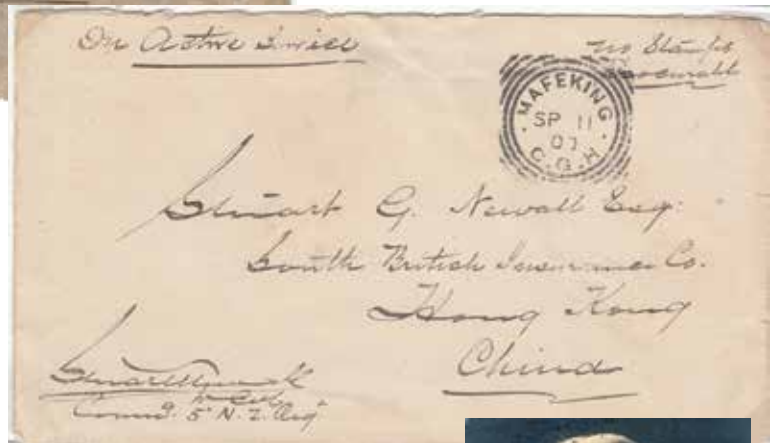 On Active Service
No Stamps
MAFEKING
SP 11
01
C.G.H
Stuart G. Newall Esq.
South British Insurance Co.
Hong Kong
China
Stuart Newall
Lt Col
Commg. 5th N.Z. Regt